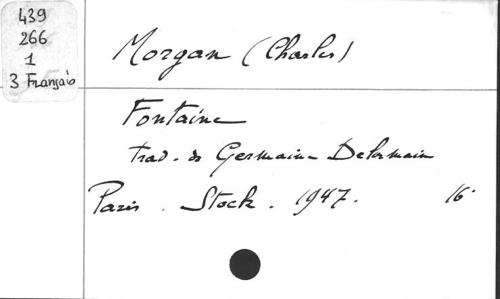 439
266
1
3 Français
Morgan (Charles)
Fontaine
trad. de Germaine Delamain
Paris. Stock. 1947. 16°